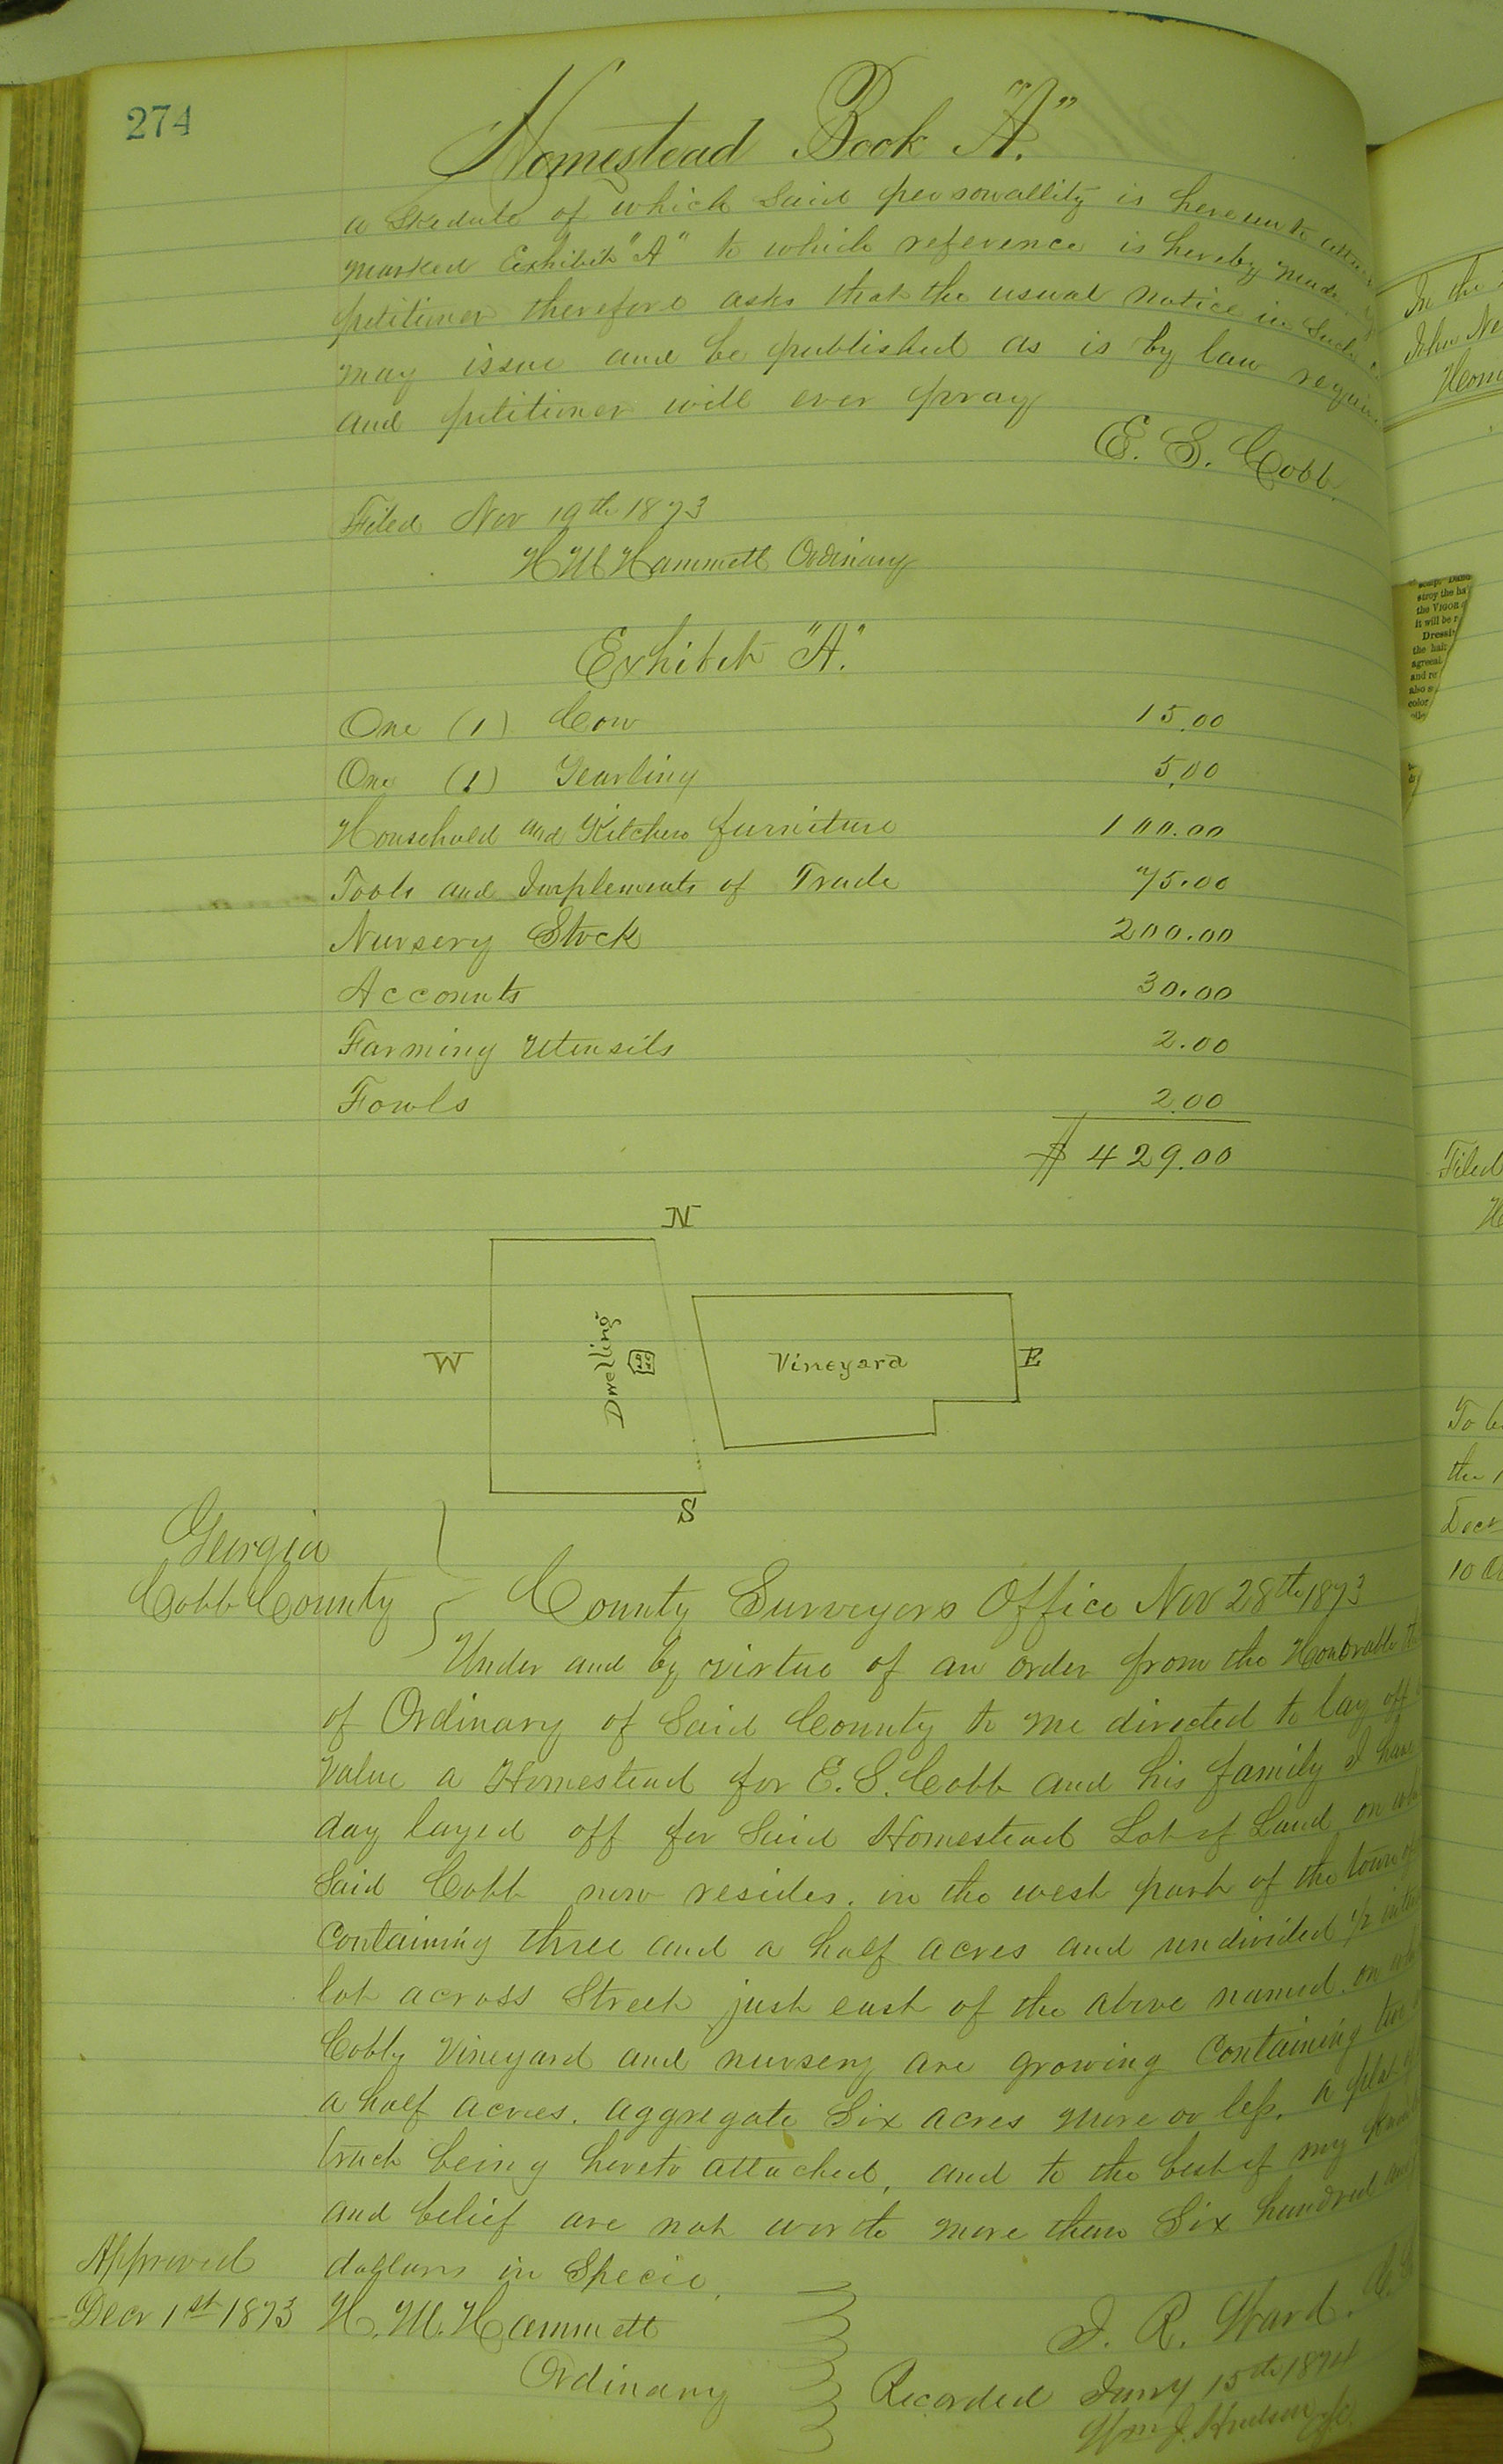 274
Homestead Book "A."
a Skedule of which Said personallity is hereunto
marked Exhibit "A" to which reference is hereby made
petitioner therefore asks that the usual notice in Such
may issue and be published as is by law
and petitioner will ever pray
E. S. Cobb
Filed Nov 19th 1873
H M Hammett Ordinary
Exhibit "A."
One (1) Cow 15.00
One (1) Yearling 5.00
Household and Kitchen furniture 100.00
Tools and Implements of Trade 75.00
Nursery Stock 200.00
Accounts 30.00
Farming Utensils 2.00
Fowls 2.00
$ 429.00
N
W Dwelling Vineyard E
S
Georgia
Cobb County County Surveyors Office Nov 28th 1873
Under and by virtue of an order from the Honorable
of Ordinary of Said County to me directed to lay off
value a Homestead for E. S. Cobb and his family I have
day layed off for Said Homestead Lot of Land on
Said Cobb now resides. in the west part of the town
Containing three and a half acres and undivided 1/2
lot across Street just east of the above named. on
Cobbs Vineyard and nursery are growing Containing
a half acres. aggregate Six acres more or less. a plat
track being hereto attached, and to the best of my
and belief are not worth more than Six hundred
dollars in Specie.
J. R. Ward.
Approved
Decr 1st 1873 H. M. Hammett
Ordinary
Recorded Jany 15th 1874
Wm J. Hudson
In the
John
Filed
the
10
soap,
stroy the
the VIGOR
it will be
Dressi
the hair
and re
also
color